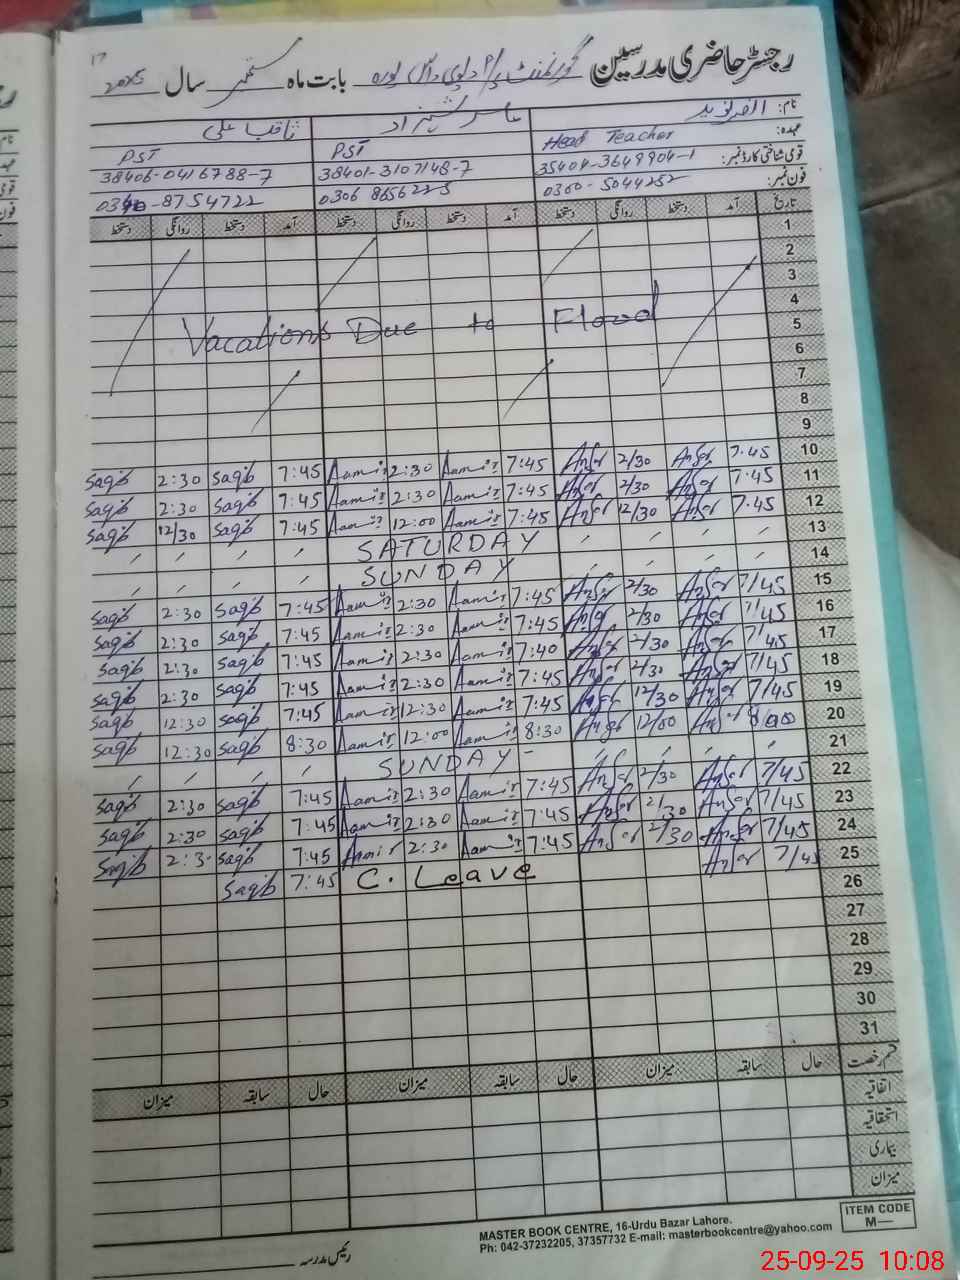 17
رجسٹر حاضری مدرسین گورنمنٹ پرا پورہ بابت ماہ ستمبر سال 2025
نام: الضر نوید عامر شہزاد ثاقب علی
عہدہ: Head Teacher PST PST
قومی شناختی کارڈ نمبر: 35404-3649904-1 38401-3107148-7 38406-0416788-7
فون نمبر: 0300-5044252 0306 8656225 0340-8754722
تاریخ آمد دستخط روانگی دستخط آمد دستخط روانگی دستخط آمد دستخط روانگی دستخط
1
2
3
4
Vacations Due to Flood 5
6
7
8
9
Saqib 2:30 Saqib 7:45 Aamir 2:30 Aamir 7:45 Ansar 2/30 Ansar 7.45 10
Saqib 2:30 Saqib 7:45 Aamir 2:30 Aamir 7:45 Ansar 2/30 Ansar 7.45 11
Saqib 12/30 Saqib 7:45 Aamir 12:00 Aamir 7:45 Ansar 12/30 Ansar 7.45 12
〃 〃 〃 〃 SATURDAY 〃 〃 〃 〃 13
〃 〃 〃 〃 SUNDAY 〃 〃 〃 〃 14
Saqib 2:30 Saqib 7:45 Aamir 2:30 Aamir 7:45 Ansar 2/30 Ansar 7/45 15
Saqib 2:30 Saqib 7:45 Aamir 2:30 Aamir 7:45 Ansar 2/30 Ansar 7/45 16
Saqib 2:30 Saqib 7:45 Aamir 2:30 Aamir 7:40 Ansar 2/30 Ansar 7/45 17
Saqib 2:30 Saqib 7:45 Aamir 2:30 Aamir 7:45 Ansar 2/30 Ansar 7/45 18
Saqib 12:30 Saqib 7:45 Aamir 12:30 Aamir 7:45 Ansar 12/30 Ansar 7/45 19
Saqib 12:30 Saqib 8:30 Aamir 12:00 Aamir 8:30 Ansar 12/00 Ansar 8/00 20
〃 〃 〃 〃 SUNDAY - 〃 〃 〃 〃 21
Saqib 2:30 Saqib 7:45 Aamir 2:30 Aamir 7:45 Ansar 2/30 Ansar 7/45 22
Saqib 2:30 Saqib 7:45 Aamir 2:30 Aamir 7:45 Ansar 2/30 Ansar 7/45 23
Saqib 2:3- Saqib 7:45 Aamir 2:30 Aamir 7:45 Ansar 2/30 Ansar 7/45 24
Saqib 7:45 C. Leave Ansar 7/45 25
26
27
28
29
30
31
قسم رخصت حال سابقہ میزان حال سابقہ میزان حال سابقہ میزان
اتفاقیہ
استحقاقیہ
بیماری
میزان
رئیس مدرسہ
MASTER BOOK CENTRE, 16-Urdu Bazar Lahore.
Ph: 042-37232205, 37357732 E-mail: masterbookcentre@yahoo.com
ITEM CODE
M—
25-09-25 10:08